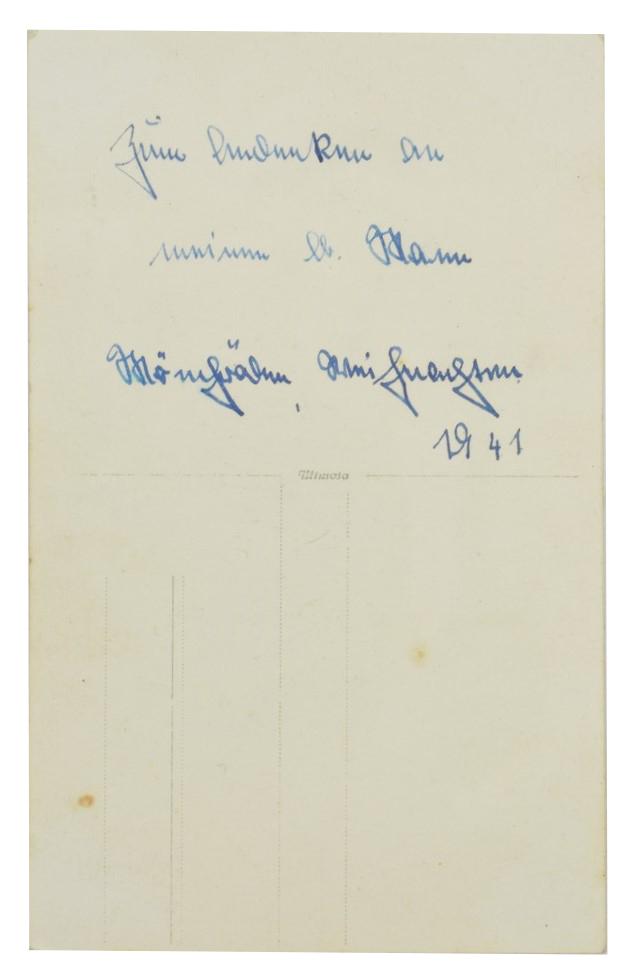 Zum Andenken an
meinen lb. Mann
Mönchröden, Weihnachten
1941
Mimosa